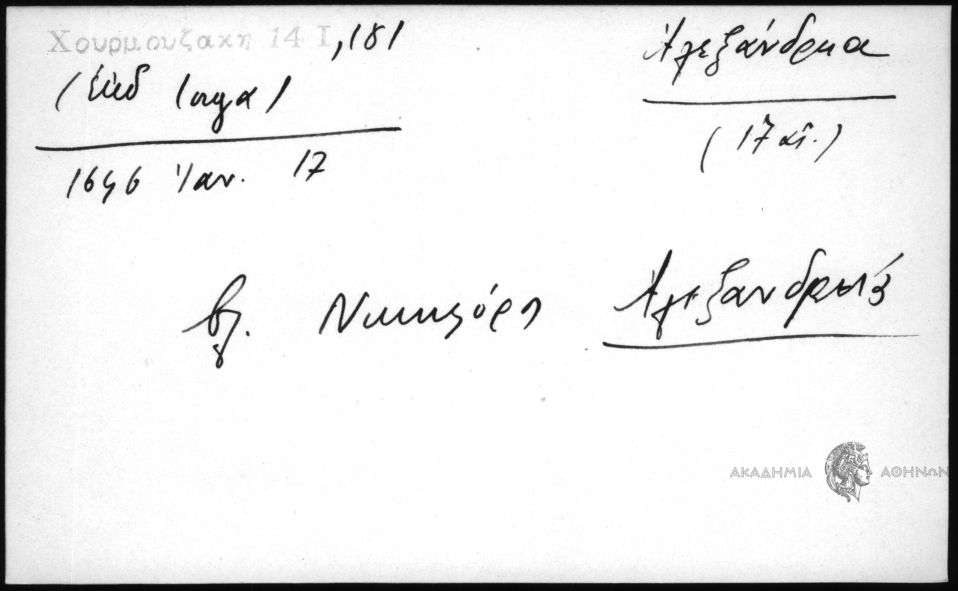 Χουρμουζακη 14 Ι, 181
(ἐκδ Ιοργα)
1646 Ἰαν. 17
Ἀλεξάνδρεια
(17 αἰ.)
βλ. Νικηφόρος Ἀλεξανδρείας
ΑΚΑΔΗΜΙΑ ΑΘΗΝΩΝ